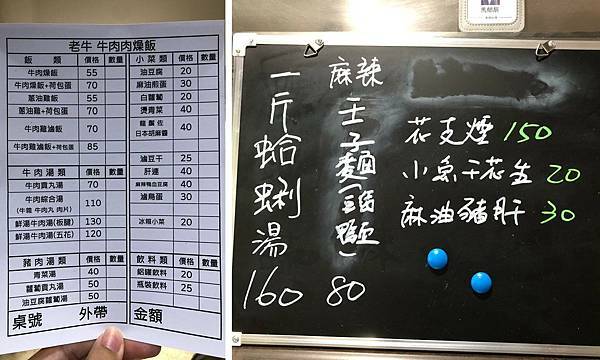 老牛 牛肉肉燥飯
飯 類 價格 數量 小菜類 價格 數量
牛肉燥飯 55 油豆腐 20
牛肉燥飯+荷包蛋 70 麻油煎蛋 30
蔥油雞飯 55 白蘿蔔 20
蔥油雞飯+荷包蛋 70 燙青菜 40
牛肉雞滷飯 70 龍鬚佐日本胡麻醬 40
牛肉雞滷飯+荷包蛋 85
滷豆干 25
牛肉湯類 價格 數量 肝連 40
牛肉貢丸湯 70 麻辣鴨血豆腐 40
牛肉綜合湯 110 滷鳥蛋 30
(牛雜 牛肉丸 肉片)
鮮湯牛肉湯(板腱) 130 冰糖小菜 20
鮮湯牛肉湯(五花) 120
豬肉湯類 價格 數量 飲料類 價格 數量
青菜湯 40 鋁罐飲料 20
蘿蔔貢丸湯 50 瓶裝飲料 25
油豆腐蘿蔔湯 50
桌號 外帶 金額
一斤蛤蜊湯
160
麻辣王子麵(雞鴨血)
80
花支煙 150
小魚干花生 20
麻油豬肝 30